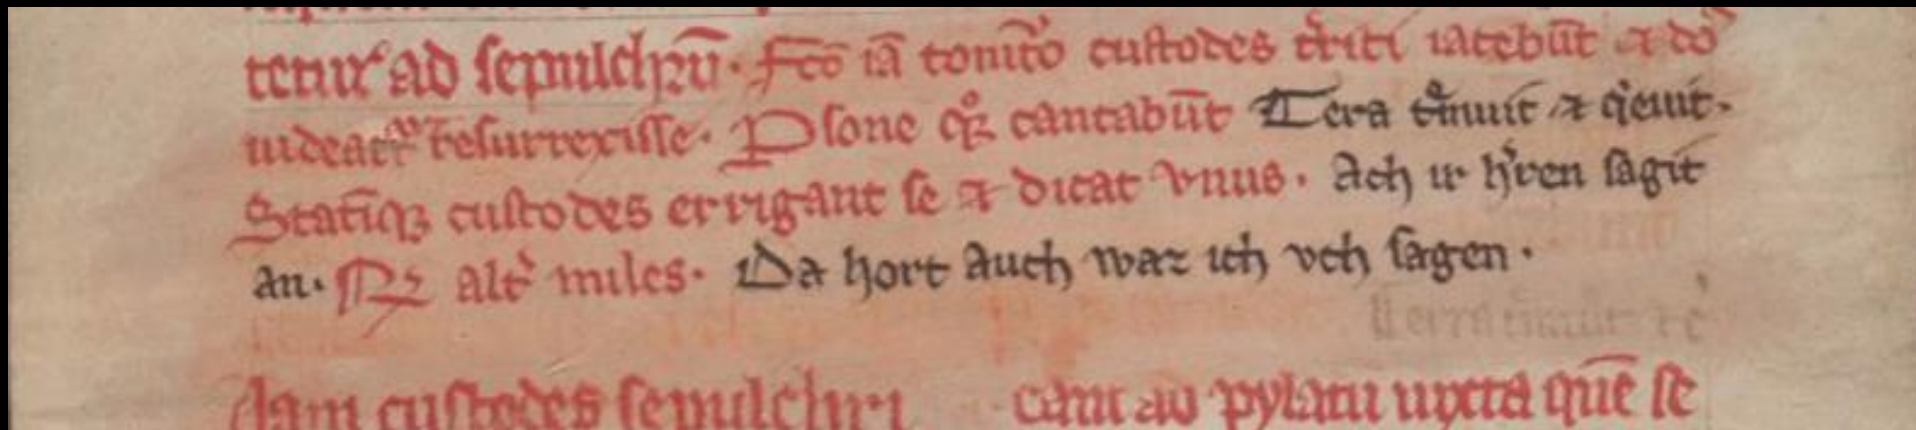 tetur ad sepulchrū. Fcō iā tonitͦo custodes tͥriti iacebūt ⁊ dō
resurrexisse. Psone qͦꝫ cantabūt Tera tͤmuit ⁊ qͥeuit.
Statīqꝫ custodes errigant se ⁊ dicat vnus. Ach ir hͤren sagit
an. R̃ altͤ miles. Da hort auch waz ich vch sagen.
Terra tͤmuit ⁊c̄
custodes sepulchri cant ad pylatū iuxta quē se